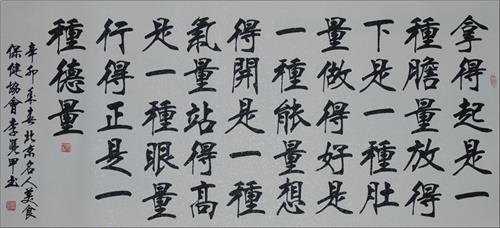 拿得起是一
種膽量放得
下是一種肚
量做得好是
一種能量想
得開是一種
氣量站得高
是一種眼量
行得正是一
種德量
辛卯春北京名人美食
保健協會李甲書